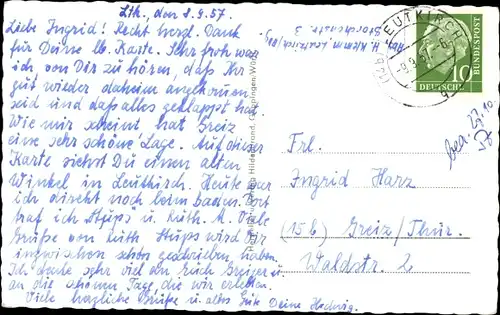 Ltk., den 8.9.57.
Liebe Ingrid! Recht herzl. Dank
für Deine lb. Karte. Sehr froh war
ich von Dir zu hören, daß Ihr
gut wieder daheim angekommen
seid und daß alles geklappt hat.
Wie mir scheint hat Greiz
eine sehr schöne Lage. Auf dieser
Karte siehst Du einen alten
Winkel in Leutkirch. Heute war
ich direkt noch beim baden. Dort
traf ich Stups u. Ruth. M. Viele
Grüße von Ruth Stups wird Dir
inzwischen schon geschrieben haben.
Ich danke sehr viel an euch Greizer u.
an die schönen Tage, die wir erlebten.
Viele herzliche Grüße u. alles Gute Deine Hedwig.
Abs. H. Klemm, Leutkirch/Allg.
Storchenstr. 3
LEUTKIRCH
DEUTSCHE BUNDESPOST
10
bea. 27.10.
57
Frl.
Ingrid Harz
(15b) Greiz/Thür.
Waldstr. 2